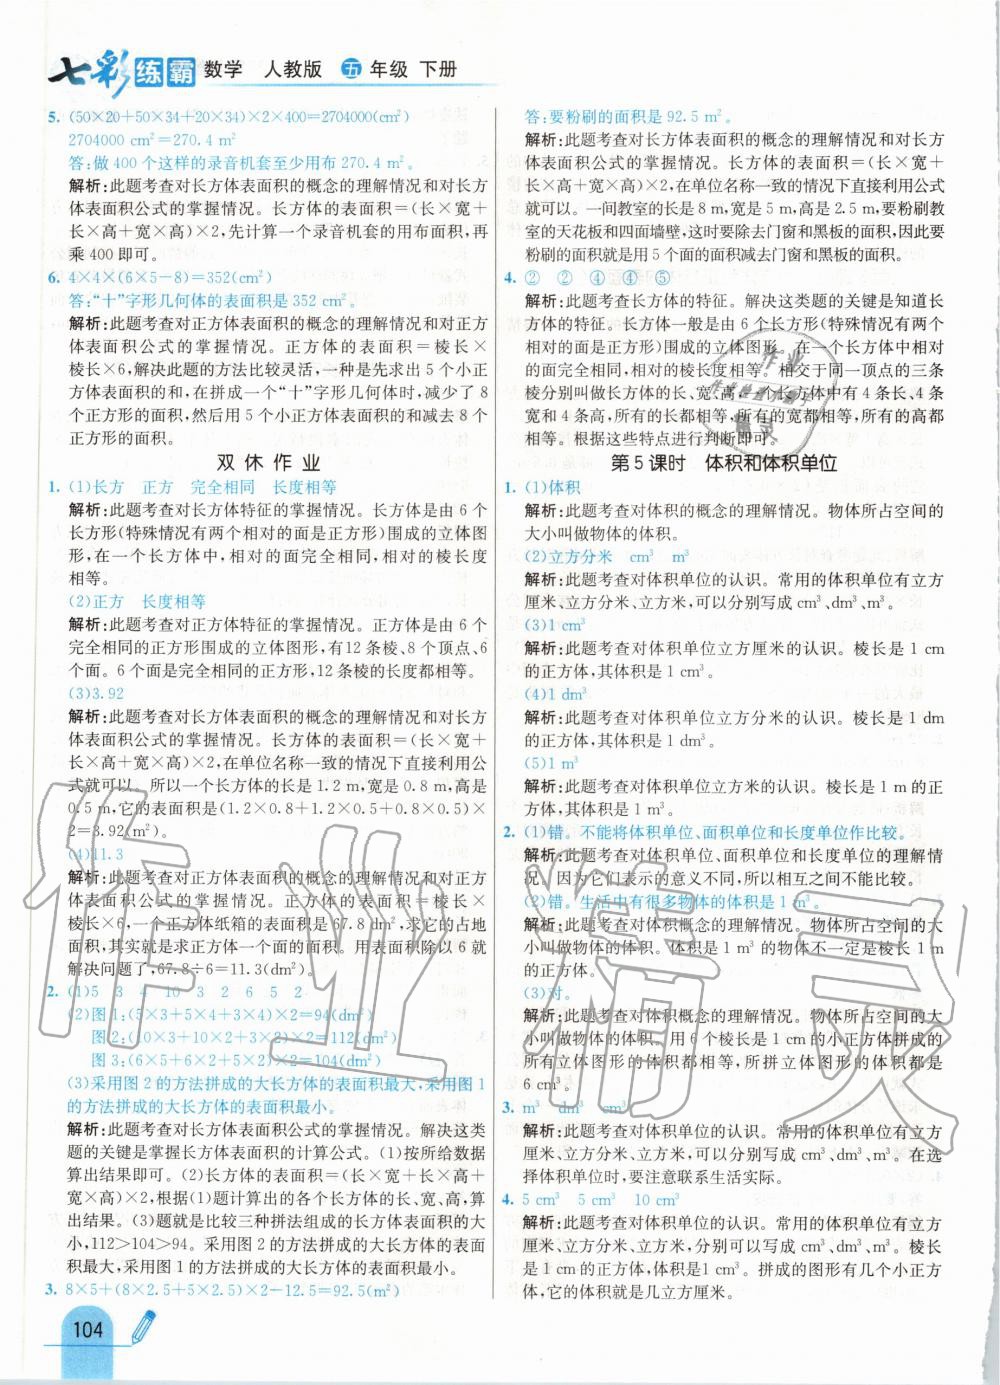 七彩练霸 数学 人教版 五年级 下册
5. (50×20+50×34+20×34)×2×400=2704000(cm²)
2704000 cm²=270.4 m²
答:做400个这样的录音机套至少用布270.4 m²。
解析:此题考查对长方体表面积的概念的理解情况和对长方
体表面积公式的掌握情况。长方体的表面积=(长×宽+
长×高+宽×高)×2,先计算一个录音机套的用布面积,再
乘400即可。
6. 4×4×(6×5-8)=352(cm²)
答:“十”字形几何体的表面积是352 cm²。
解析:此题考查对正方体表面积的概念的理解情况和对正方
体表面积公式的掌握情况。正方体的表面积=棱长×
棱长×6,解决此题的方法比较灵活,一种是先求出5个小正
方体表面积的和,在拼成一个“十”字形几何体时,减少了8
个正方形的面积,然后用5个小正方体表面积的和减去8个
正方形的面积。
双休作业
1. (1)长方 正方 完全相同 长度相等
解析:此题考查对长方体特征的掌握情况。长方体是由6个
长方形(特殊情况有两个相对的面是正方形)围成的立体图
形,在一个长方体中,相对的面完全相同,相对的棱长度
相等。
(2)正方 长度相等
解析:此题考查对正方体特征的掌握情况。正方体是由6个
完全相同的正方形围成的立体图形,有12条棱、8个顶点、6
个面。6个面是完全相同的正方形,12条棱的长度都相等。
(3)3.92
解析:此题考查对长方体表面积的概念的理解情况和对长方
体表面积公式的掌握情况。长方体的表面积=(长×宽+
长×高+宽×高)×2,在单位名称一致的情况下直接利用公
式就可以。所以一个长方体的长是1.2 m,宽是0.8 m,高是
0.5 m,它的表面积是(1.2×0.8+1.2×0.5+0.8×0.5)×
2=3.92(m²)。
(4)11.3
解析:此题考查对正方体表面积的概念的理解情况和对正方
体表面积公式的掌握情况。正方体的表面积=棱长×
棱长×6,一个正方体纸箱的表面积是67.8 dm²,求它的占地
面积,其实就是求正方体一个面的面积。用表面积除以6就
解决问题了,67.8÷6=11.3(dm²)。
2. (1)5 3 4 10 3 2 6 5 2
(2)图1:(5×3+5×4+3×4)×2=94(dm²)
图2:(10×3+10×2+3×2)×2=112(dm²)
图3:(6×5+6×2+5×2)×2=104(dm²)
(3)采用图2的方法拼成的大长方体的表面积最大,采用图1
的方法拼成的大长方体的表面积最小。
解析:此题考查对长方体表面积公式的掌握情况。解决这类
题的关键是掌握长方体表面积的计算公式。(1)按所给数据
算出结果即可。(2)长方体的表面积=(长×宽+长×高+
宽×高)×2,根据题意计算出的各个长方体的长、宽、高,算
出结果。(3)题就是比较三种拼法组成的长方体表面积的大
小,112>104>94。采用图2的方法拼成的大长方体的表面
积最大,采用图1的方法拼成的大长方体的表面积最小。
3. 8×5+(8×2.5+5×2.5)×2-12.5=92.5(m²)
104
答:要粉刷的面积是92.5 m²。
解析:此题考查对长方体表面积的概念的理解情况和对长方
体表面积公式的掌握情况。长方体的表面积=(长×宽+
长×高+宽×高)×2,在单位名称一致的情况下直接利用公式
就可以。一间教室的长是8 m,宽是5 m,高是2.5 m,要粉刷教
室的天花板和四面墙壁,这时要除去门窗和黑板的面积,因此要
粉刷的面积就是用5个面的面积减去门窗和黑板的面积。
4. ② ② ④ ④ ⑤
解析:此题考查长方体的特征。解决这类题的关键是知道长
方体的特征。长方体一般是由6个长方形(特殊情况有两个
相对的面是正方形)围成的立体图形。在一个长方体中相对
的面完全相同,相对的棱长度相等。相交于同一顶点的三条
棱分别叫做长方体的长、宽、高,一个长方体中有4条长、4条
宽和4条高,所有的长都相等,所有的宽都相等,所有的高都
相等。根据这些特点进行判断即可。
第5课时 体积和体积单位
1. (1)体积
解析:此题考查对体积的概念的理解情况。物体所占空间的
大小叫做物体的体积。
(2)立方分米 cm³ m³
解析:此题考查对体积单位的认识。常用的体积单位有立方
厘米、立方分米、立方米,可以分别写成cm³、dm³、m³。
(3)1 cm³
解析:此题考查对体积单位立方厘米的认识。棱长是1 cm
的正方体,其体积是1 cm³。
(4)1 dm³
解析:此题考查对体积单位立方分米的认识。棱长是1 dm
的正方体,其体积是1 dm³。
(5)1 m³
解析:此题考查对体积单位立方米的认识。棱长是1 m的正
方体,其体积是1 m³。
2. (1)错。不能将体积单位、面积单位和长度单位作比较。
解析:此题考查对体积单位、面积单位和长度单位的理解情
况。因为它们表示的意义不同,所以相互之间不能比较。
(2)错。生活中有很多物体的体积是1 m³。
解析:此题考查对体积概念的理解情况。物体所占空间的大
小叫做物体的体积。体积是1 m³的物体不一定是棱长1 m
的正方体。
(3)对。
解析:此题考查对体积概念的理解情况。物体所占空间的大
小叫做物体的体积。用6个棱长是1 cm的小正方体拼成的
所有立体图形的体积都相等,所拼立体图形的体积都是
6 cm³。
3. m³ dm³ cm³
解析:此题考查对体积单位的认识。常用的体积单位有立方
厘米、立方分米、立方米,可以分别写成cm³、dm³、m³。在选
择体积单位时,要注意联系生活实际。
4. 5 cm³ 5 cm³ 10 cm³
解析:此题考查对体积单位的认识。常用的体积单位有立方
厘米、立方分米、立方米,可以分别写成cm³、dm³、m³。棱长
是1 cm的正方体,体积是1 cm³。拼成的图形有几个小正方
体,它的体积就是几立方厘米。
作业精灵